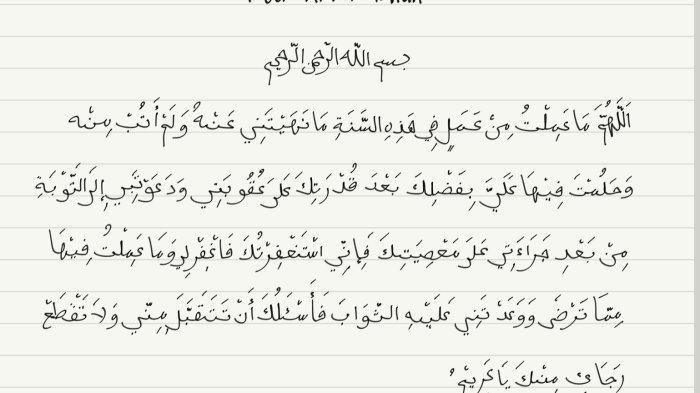 بسم الله الرحمن الرحيم
اَللَّهُمَّ مَا عَمِلْتُ مِنْ عَمَلٍ فِي هَذِهِ السَّنَةِ مَا نَهَيْتَنِي عَنْهُ وَلَمْ أَتُبْ مِنْه
وَحَلُمْتَ فِيْهَا عَلَيَّ بِفَضْلِكَ بَعْدَ قُدْرَتِكَ عَلَى عُقُوبَتِي وَدَعَوْتَنِي إِلَى التَّوْبَةِ
مِنْ بَعْدِ جَرَاءَتِي عَلَى مَعْصِيَتِكَ فَإِنِّي اسْتَغْفَرْتُكَ فَاغْفِرْلِي وَمَا عَمِلْتُ فِيْهَا
مِمَّا تَرْضَى وَوَعَدْتَنِي عَلَيْهِ الثَّوَابَ فَأَسْئَلُكَ أَنْ تَتَقَبَّلَ مِنِّي وَلَا تَقْطَعْ
رَجَائِ مِنْكَ يَا كَرِيْمُ